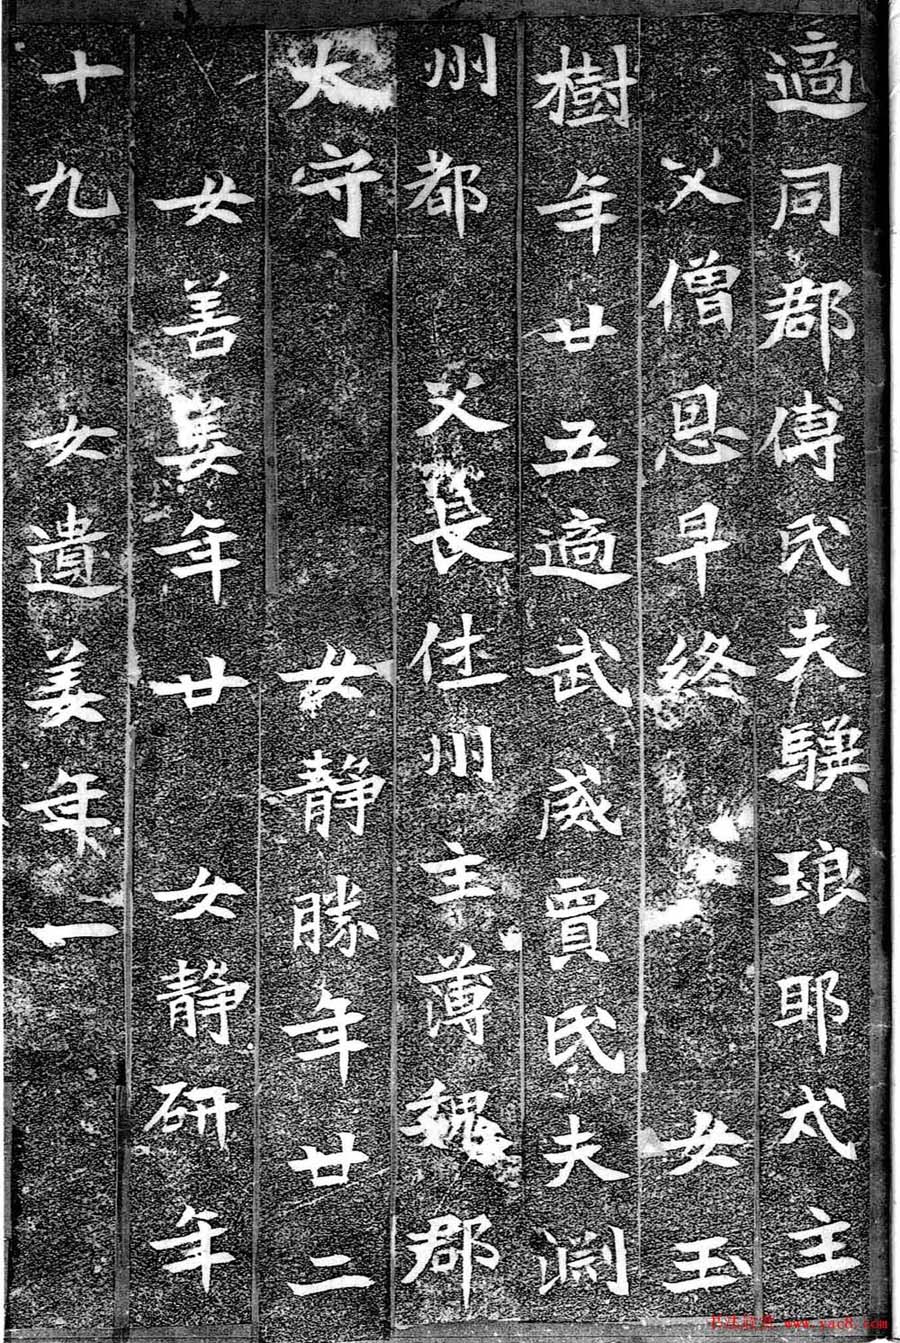 適同郡傅氏夫驥琅耶戍主
父僧恩早終 女玉
樹年廿五適武威賈氏夫淵
州都 父長休州主薄魏郡
太守 女靜勝年廿二
女善姜年廿 女靜研年
十九 女遺姜年一
书法欣赏 www.yac8.com